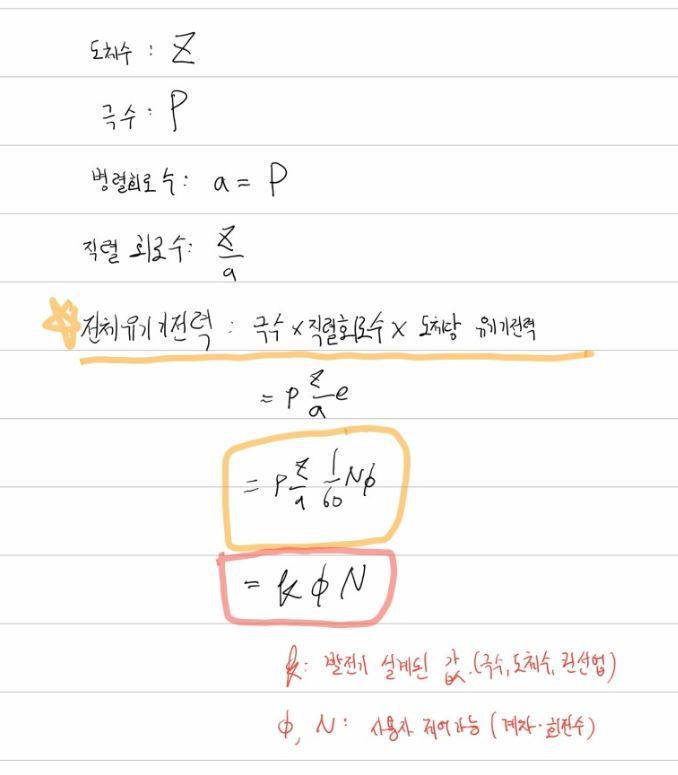 도체수 : Z
극수 : P
병렬회로수 : a = P
직렬 회로수 : Z/a
전체유기기전력 : 극수 × 직렬회로수 × 도체당 유기기전력
= P Z/a e
= P Z/a 1/60 Nϕ
= k ϕ N
k : 발전기 설계된 값. (극수, 도체수, 권선법)
ϕ, N : 사용자 제어가능 (계자·회전수)